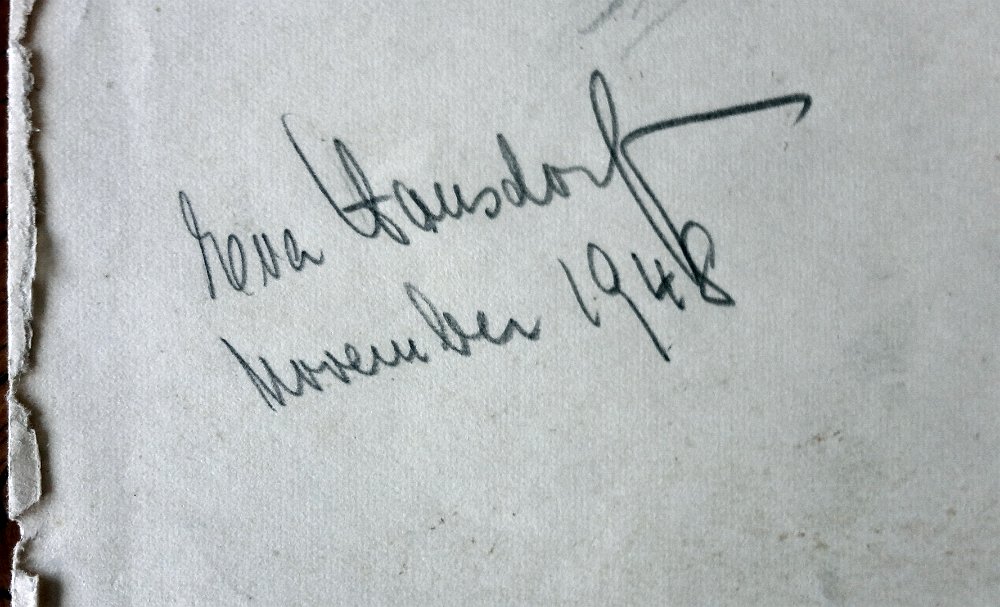 Eva Hausdorf
November 1948